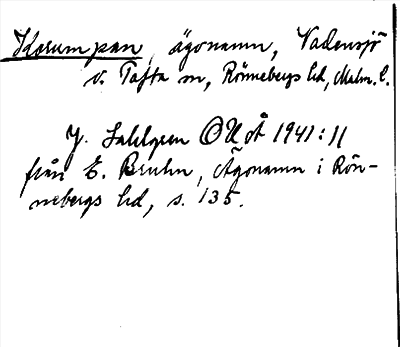 Karumpan, ägonamn, Vadensjö
v. Tofta sn, Rönnebergs hd, Malm. l.
J. Sahlgren OUÅ 1941: 11
från E. Bruhn, Ägonamn i Rön-
nebergs hd, s. 135.